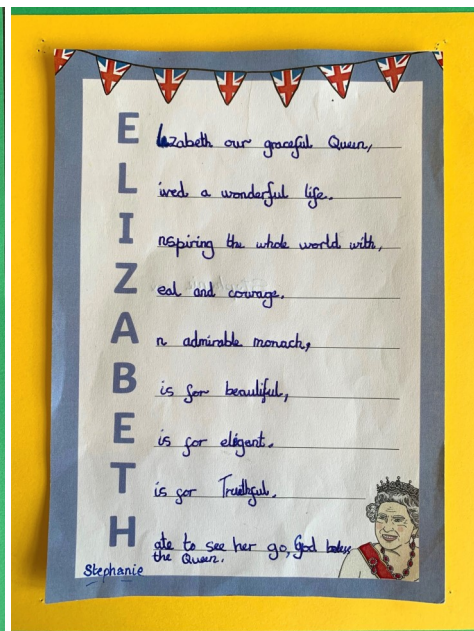 E lizabeth our graceful Queen,
L ived a wonderful life.
I nspiring the whole world with,
Z eal and courage.
A n admirable monach,
B is for beautiful,
E is for elegent.
T is for Truthful.
H ate to see her go, God bless
the Queen.
Stephanie